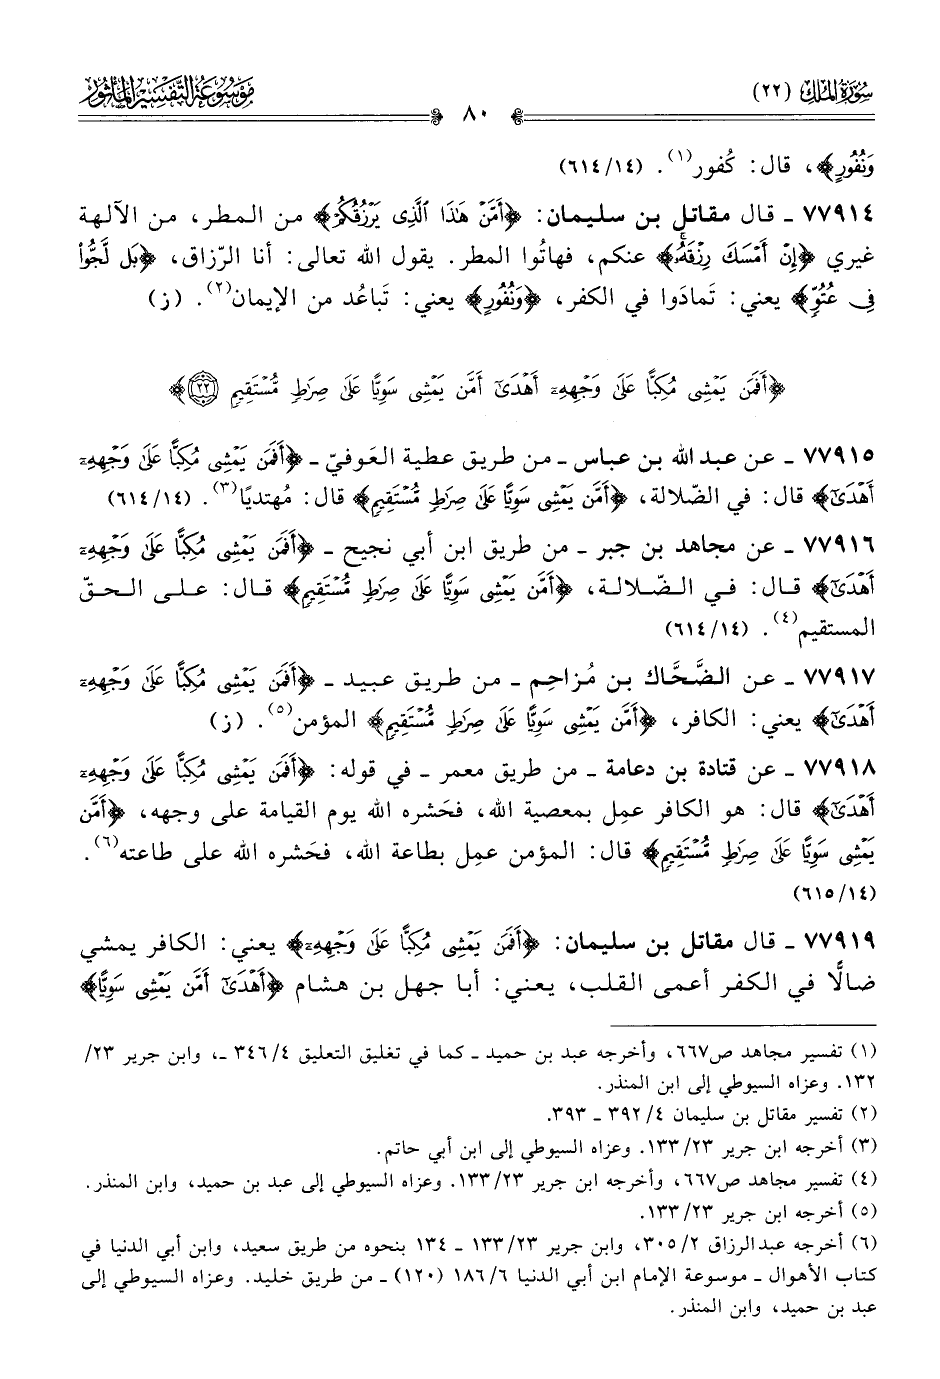 سُورَةُ المُلْكِ (٢٢)
٨٠
مَوْسُوعَةُ التَّفْسِيرِ المَأْثُورِ
وَنُفُورٍ﴾، قال: كُفور(١). (٦١٤/١٤)
٧٧٩١٤ ـ قال مقاتل بن سليمان: ﴿أَمَّنْ هَٰذَا ٱلَّذِى يَرْزُقُكُمْ﴾ من المطر، من الآلهة
غيري ﴿إِنْ أَمْسَكَ رِزْقَهُۥ﴾ عنكم، فهاتُوا المطر. يقول الله تعالى: أنا الرّزاق، ﴿بَل لَّجُّوا۟
فِى عُتُوٍّ﴾ يعني: تَمادَوا في الكفر، ﴿وَنُفُورٍ﴾ يعني: تَباعُد من الإيمان(٢). (ز)
﴿أَفَمَن يَمْشِى مُكِبًّا عَلَىٰ وَجْهِهِۦٓ أَهْدَىٰٓ أَمَّن يَمْشِى سَوِيًّا عَلَىٰ صِرَٰطٍ مُّسْتَقِيمٍ ﴿٢٢﴾﴾
٧٧٩١٥ ـ عن عبد الله بن عباس ـ من طريق عطية العَوفيّ ـ ﴿أَفَمَن يَمْشِى مُكِبًّا عَلَىٰ وَجْهِهِۦٓ
أَهْدَىٰٓ﴾ قال: في الضّلالة، ﴿أَمَّن يَمْشِى سَوِيًّا عَلَىٰ صِرَٰطٍ مُّسْتَقِيمٍ﴾ قال: مُهتديًا(٣). (٦١٤/١٤)
٧٧٩١٦ ـ عن مجاهد بن جبر ـ من طريق ابن أبي نجيح ـ ﴿أَفَمَن يَمْشِى مُكِبًّا عَلَىٰ وَجْهِهِۦٓ
أَهْدَىٰٓ﴾ قال: في الضّلالة، ﴿أَمَّن يَمْشِى سَوِيًّا عَلَىٰ صِرَٰطٍ مُّسْتَقِيمٍ﴾ قال: على الحقّ
المستقيم(٤). (٦١٤/١٤)
٧٧٩١٧ ـ عن الضَّحَّاك بن مُزاحِم ـ من طريق عبيد ـ ﴿أَفَمَن يَمْشِى مُكِبًّا عَلَىٰ وَجْهِهِۦٓ
أَهْدَىٰٓ﴾ يعني: الكافر، ﴿أَمَّن يَمْشِى سَوِيًّا عَلَىٰ صِرَٰطٍ مُّسْتَقِيمٍ﴾ المؤمن(٥). (ز)
٧٧٩١٨ ـ عن قتادة بن دعامة ـ من طريق معمر ـ في قوله: ﴿أَفَمَن يَمْشِى مُكِبًّا عَلَىٰ وَجْهِهِۦٓ
أَهْدَىٰٓ﴾ قال: هو الكافر عمِل بمعصية الله، فحَشره الله يوم القيامة على وجهه، ﴿أَمَّن
يَمْشِى سَوِيًّا عَلَىٰ صِرَٰطٍ مُّسْتَقِيمٍ﴾ قال: المؤمن عمِل بطاعة الله، فحَشره الله على طاعته(٦).
(٦١٥/١٤)
٧٧٩١٩ ـ قال مقاتل بن سليمان: ﴿أَفَمَن يَمْشِى مُكِبًّا عَلَىٰ وَجْهِهِۦٓ﴾ يعني: الكافر يمشي
ضالًّا في الكفر أعمى القلب، يعني: أبا جهل بن هشام ﴿أَهْدَىٰٓ أَمَّن يَمْشِى سَوِيًّا﴾
(١) تفسير مجاهد ص٦٦٧، وأخرجه عبد بن حميد ـ كما في تغليق التعليق ٣٤٦/٤ ـ، وابن جرير ٢٣/
١٣٢. وعزاه السيوطي إلى ابن المنذر.
(٢) تفسير مقاتل بن سليمان ٣٩٢/٤ ـ ٣٩٣.
(٣) أخرجه ابن جرير ١٣٣/٢٣. وعزاه السيوطي إلى ابن أبي حاتم.
(٤) تفسير مجاهد ص٦٦٧، وأخرجه ابن جرير ١٣٣/٢٣. وعزاه السيوطي إلى عبد بن حميد، وابن المنذر.
(٥) أخرجه ابن جرير ١٣٣/٢٣.
(٦) أخرجه عبدالرزاق ٣٠٥/٢، وابن جرير ١٣٣/٢٣ ـ ١٣٤ بنحوه من طريق سعيد، وابن أبي الدنيا في
كتاب الأهوال ـ موسوعة الإمام ابن أبي الدنيا ١٨٦/٦ (١٢٠) ـ من طريق خليد. وعزاه السيوطي إلى
عبد بن حميد، وابن المنذر.